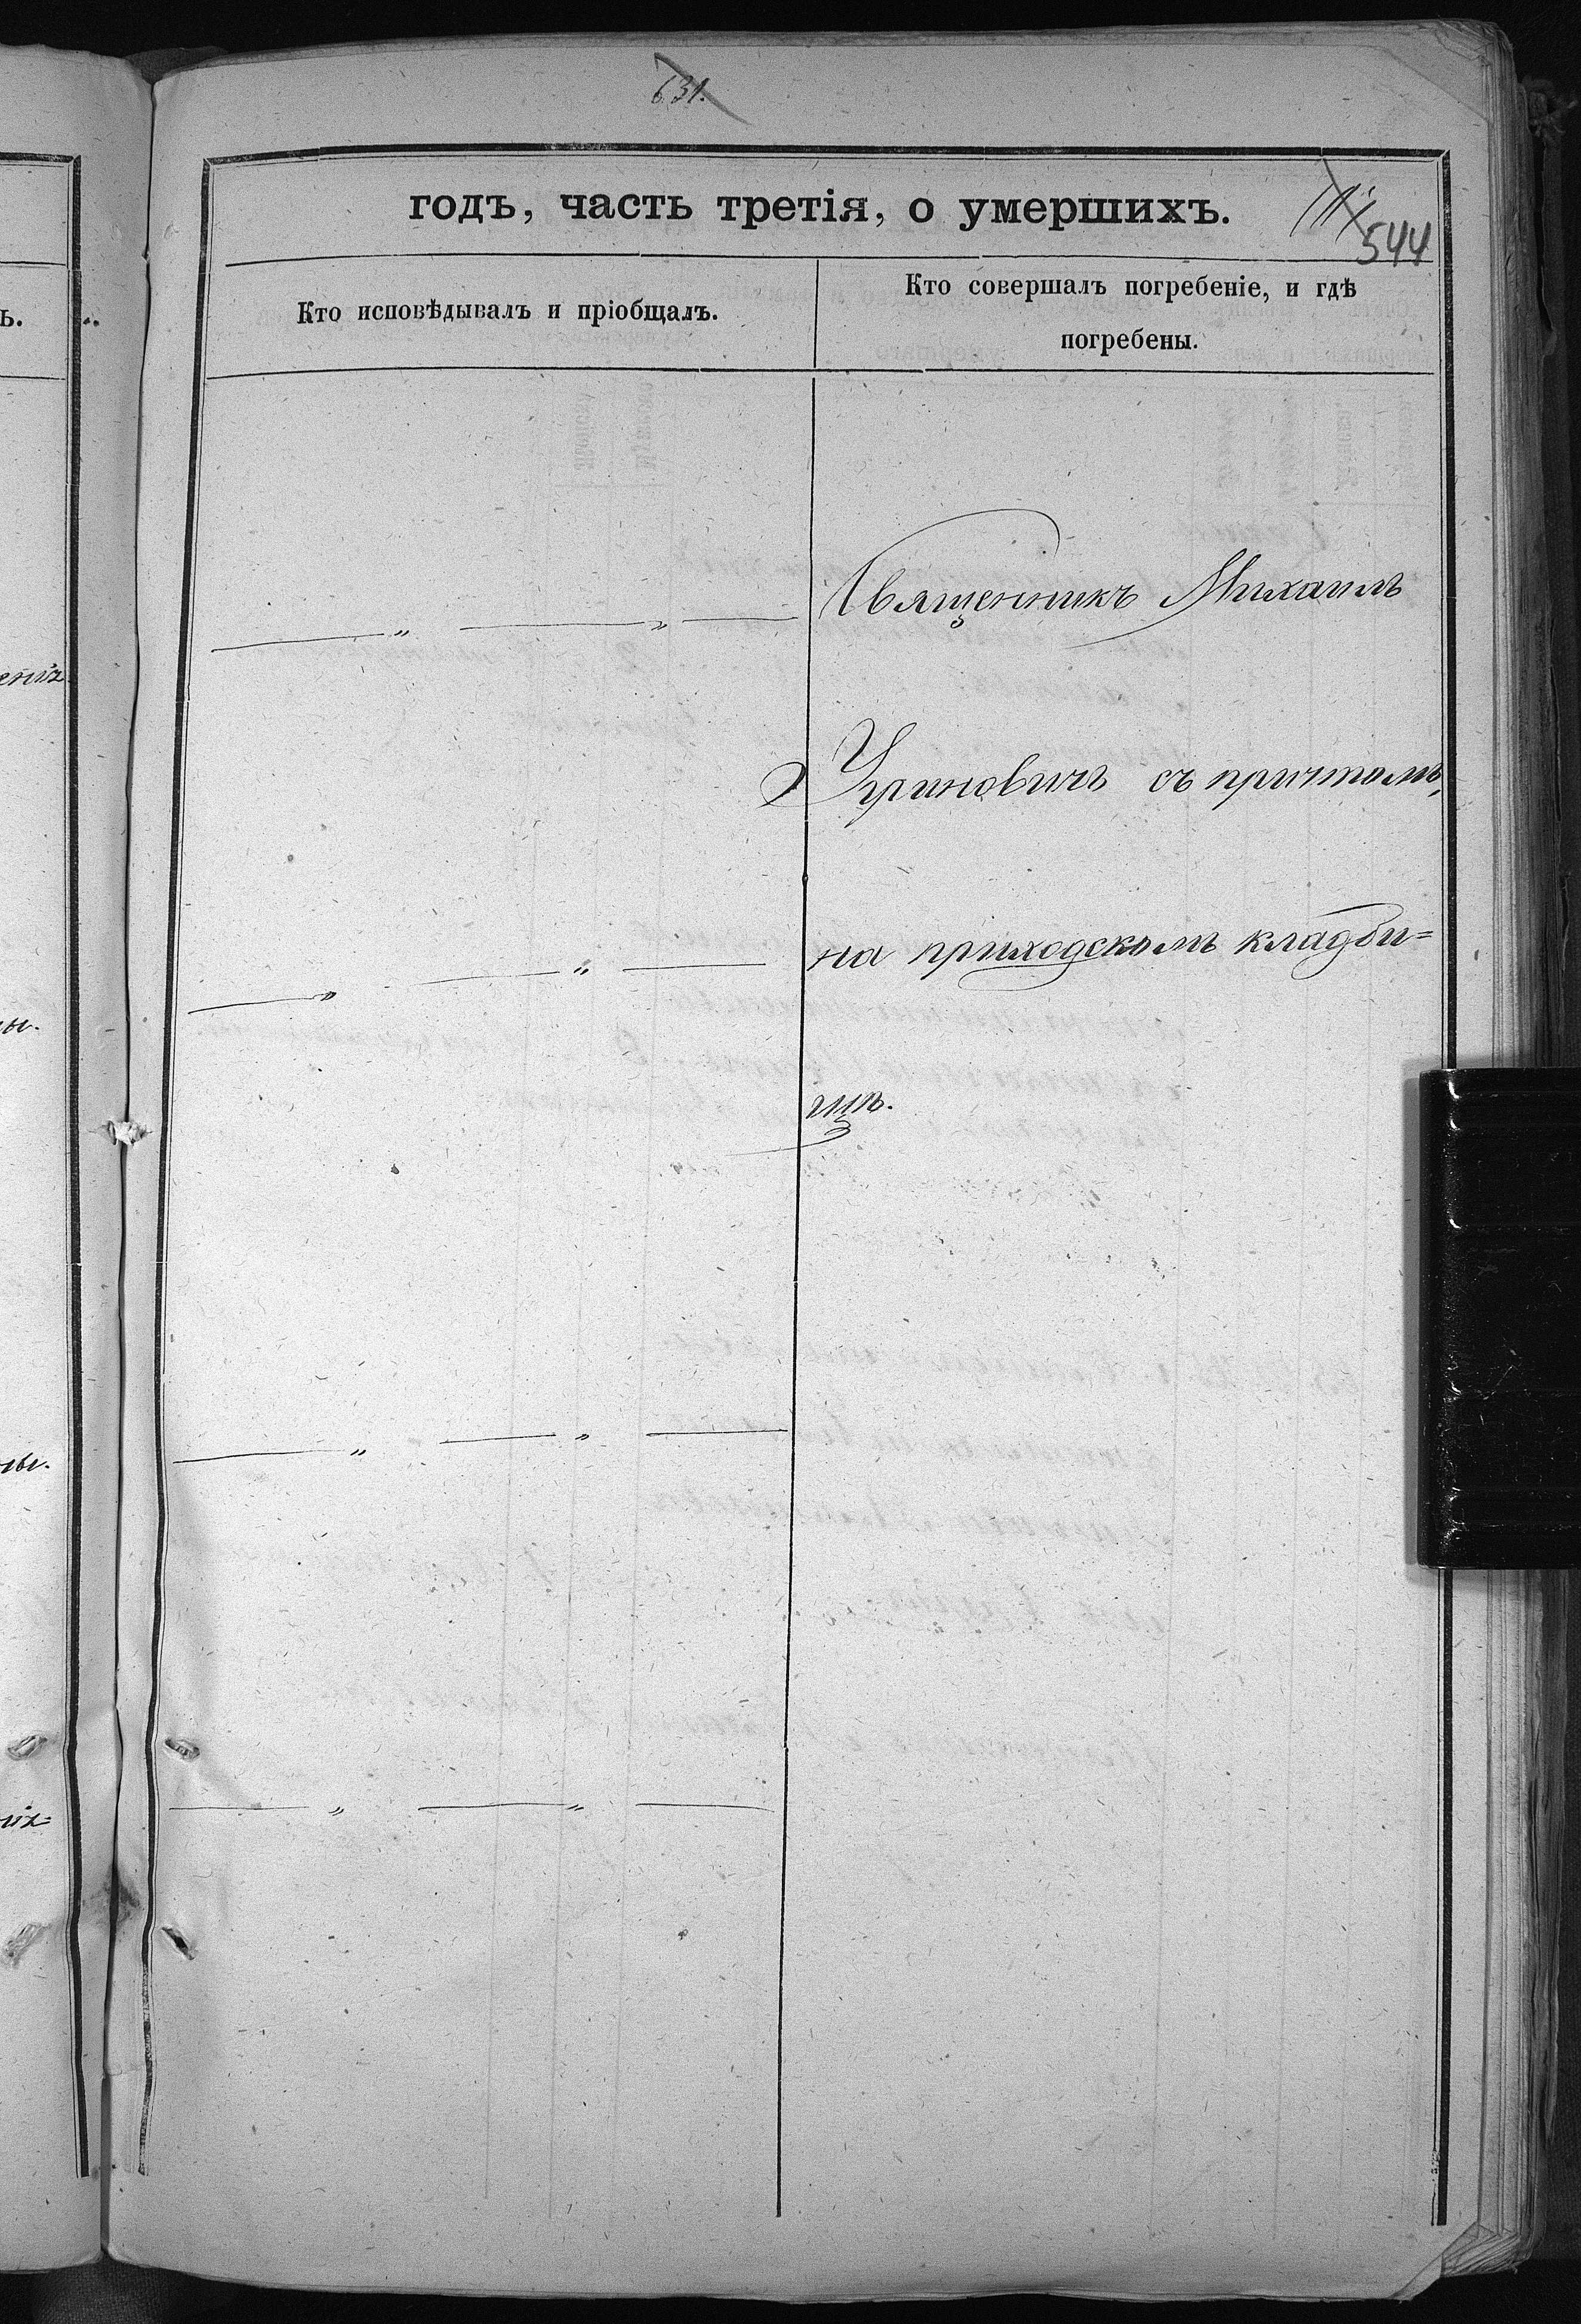 631.
годъ, часть третія, о умершихъ.
544
Кто исповѣдывалъ и пріобщалъ.
Кто совершалъ погребеніе, и гдѣ
погребены.
Священникъ Михаилъ
" "
Угриновичъ съ причтомъ,
на приходскомъ кладби=
" "
щѣ.
" "
" "